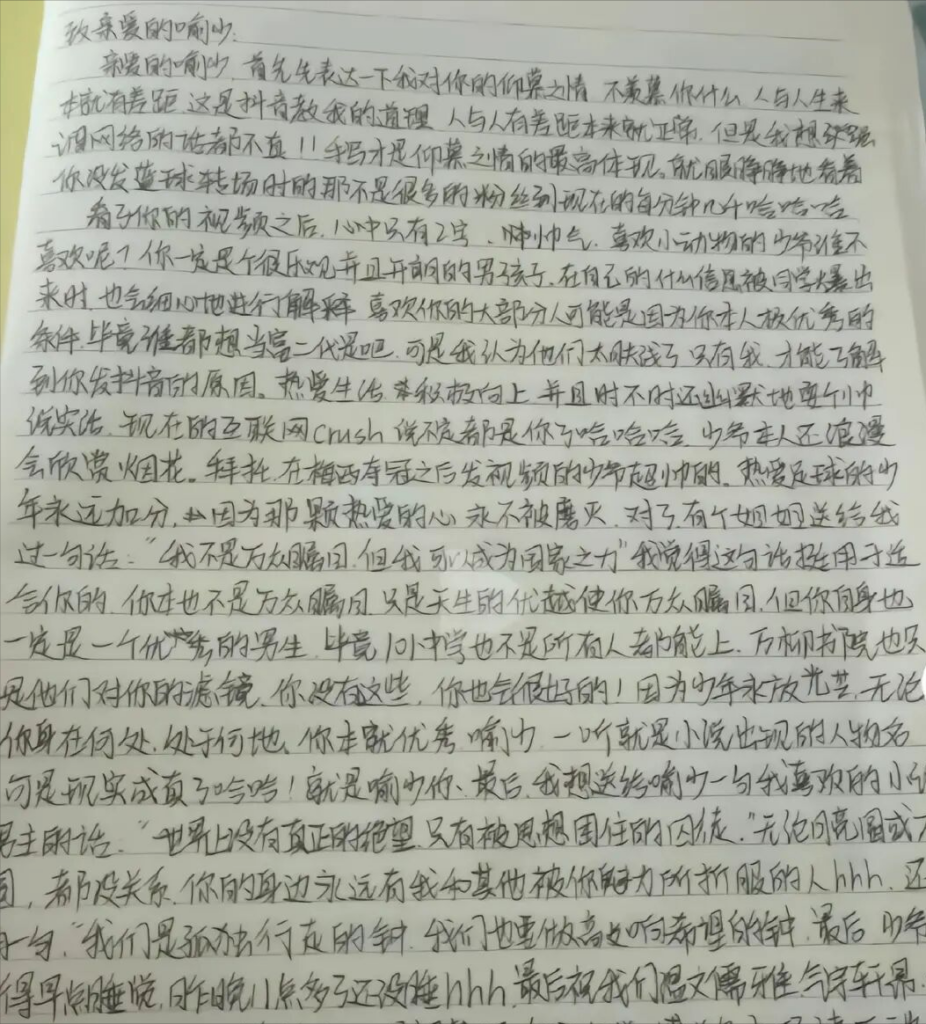 致亲爱的喻少:
亲爱的喻少,首先先表达一下我对你的仰慕之情 不羡慕你什么 人与人生来
本就有差距 这是抖音教我的道理 人与人有差距本来就正常,但是我想强
调网络的话都不真!!手写才是仰慕之情的最高体现。就眼睁睁地看着
你没发篮球转场时的那不是很多的粉丝到现在的每分钟几千哈哈哈
看了你的视频之后,心中只有2字、帅气,喜欢小动物的少年谁不
喜欢呢?你一定是个很乐观并且开朗的男孩子,在自己的什么信息被同学大暴出
来时,也会细心地进行解释 喜欢你的大部分人可能是因为你本人极优秀的
条件,毕竟谁都想当富二代是吧,可是我认为他们太肤浅了 只有我,才能了解
到你发抖音的原因。热爱生活 积极向上 并且时不时还幽默地耍个小帅
说实话,现在的互联网crush 说不定都是你了哈哈哈,少年本人还浪漫
会欣赏烟花。拜托,在梅西夺冠之后发视频的少年超帅的。热爱足球的少
年永远加分,因为那颗热爱的心 永不被磨灭,对了,有个姐姐送给我
过一句话:“我不是万众瞩目,但我可以成为国家之力”我觉得这句话挺用于适
合你的,你本也不是万众瞩目,只是天生的优越使你万众瞩目,但你自身也
一定是一个优秀的男生,毕竟101中学也不是所有人都能上,万柳书院也只
是他们对你的滤镜,你没有这些,你也会很好的!因为少年永放光芒,无论
你身在何处,处于何地,你本就优秀,喻少,一听就是小说出现的人物名
可是现实成真了哈哈!就是喻少你、最后,我想送给喻少一句我喜欢的小说
男主的话:“世界上没有真正的绝望,只有被思想困住的囚徒。”无论
国,都没关系,你的身边永远有我和其他被你魅力所折服的人hhh,还
有一句,“我们是孤独行走的钟,我们也要做高处响希望的钟,最后,少年
得早点睡觉,昨晚11点多了还没睡hhh,最后祝我们温文儒雅,气宇轩昂,